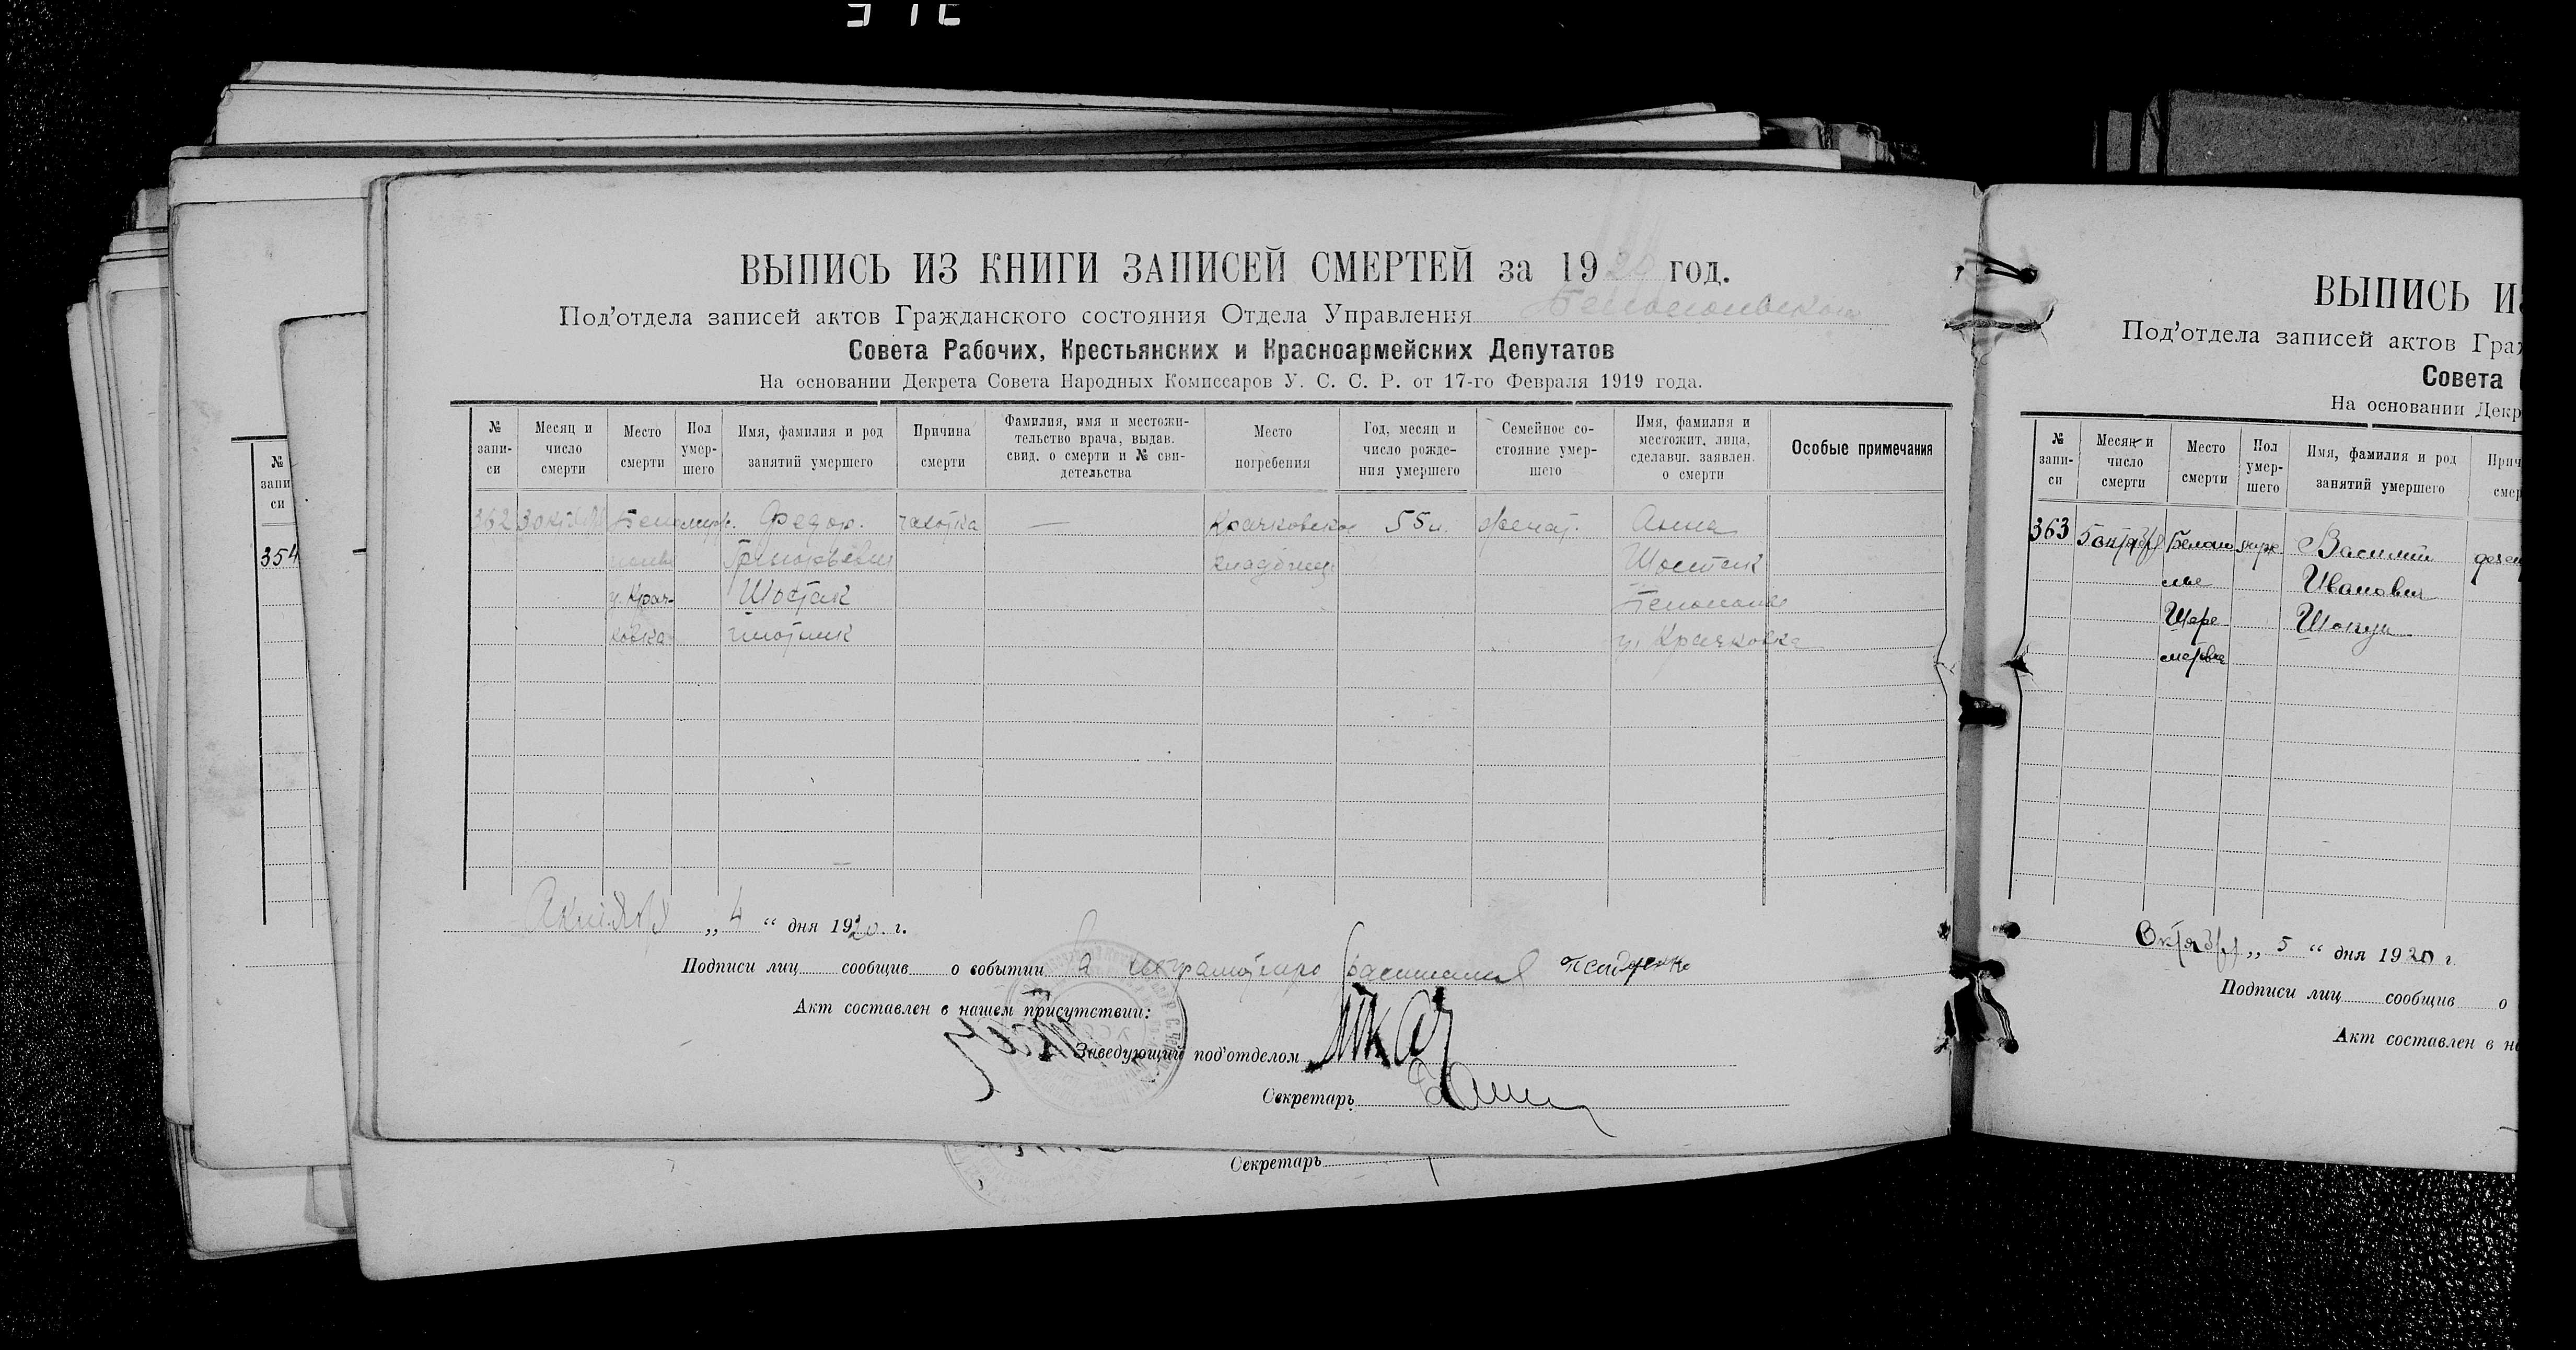 ВЫПИСЬ ИЗ КНИГИ ЗАПИСЕЙ СМЕРТЕЙ за 1920 год.
Под'отдела записей актов Гражданского состояния Отдела Управления
Совета Рабочих, Крестьянских и Красноармейских Депутатов
На основании Декрета Совета Народных Комиссаров У. С. С. Р. от 17-го Февраля 1919 года.
№ запи- си
Месяц и число смерти
Место смерти
Пол умер- шего
Имя, фамилия и род занятий умершего
Причина смерти
Фамилия, имя и местожи- тельство врача, выдав. свид. о смерти и № сви- детельства
Место погребения
Год, месяц и число рожде- ния умершего
Семейное со- стояние умер- шего
Имя, фамилия и местожит. лица, сделавш. заявлен. о смерти
Особые примечания
362 3 Федор. чахотка — 55 л. женат. Анна
кладбище Шостак
х. Крач- Шостак
ковка плотник х. Крачковка
„ 4 “ дня 1920 г.
Подписи лиц сообщив о событии
Акт составлен в нашем присутствии:
Заведующий под'отделом Ткач
Секретарь
Секретарь
№ запи си
354
ВЫПИСЬ ИЗ
Под'отдела записей актов Граж
Совета
На основании Декр
№ запи- си
Месяц и число смерти
Место смерти
Пол умер- шего
Имя, фамилия и род занятий умершего
Прич смер
363 5 октября Белоц Василий
Иванович
Шере
метовка
Октября „ 5 “ дня 1920 г.
Подписи лиц сообщив о
Акт составлен в н